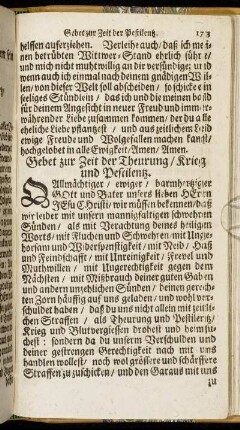 Gebet zur Zeit der Pestilentz. 173
helffen auferziehen. Verleihe auch / daß ich meinen
betrübten Wittwer-Stand ehrlich führe /
und mich nicht muthwillig an dir versündige; und
wenn auch ich einmal nach deinem gnädigen Willen /
von dieser Welt soll abscheiden / so schicke ein
seeliges Stündlein / daß ich und die meinen dort
für deinem Angesicht in neuer Freud und immerwährender
Liebe zusammen kommen / der du alle
eheliche Liebe pflantzest / und aus zeitlichem Leid
ewige Freude und Wolgefallen machen kanst /
hochgelobet in alle Ewigkeit / Amen / Amen.
Gebet zur Zeit der Theurung / Krieg
und Pestilentz.
O Allmächtiger / ewiger / barmhertziger
GOtt und Vater unsers lieben HErrn
JEsu Christi / wir müssen bekennen / daß
wir leider mit unsern mannigfaltigen schwehren
Sünden / als mit Verachtung deines heiligen
Worts / mit Fluchen und Schwehren / mit Ungehorsam
und Widerspenstigkeit / mit Neid / Haß
und Feindschafft / mit Unreinigkeit / Frevel und
Muthwillen / mit Ungerechtigkeit gegen dem
Nächsten / mit Mißbrauch deiner guten Gaben
und andern unzehlichen Sünden / deinen gerechten
Zorn häuffig auf uns geladen / und wohl verschuldet
haben / daß du uns nicht allein mit zeitlichen
Straffen / als Theurung und Pestilentz /
Krieg und Blutvergiessen drohest und heimsuchest
: sondern da du unserm Verschulden und
deiner gestrengen Gerechtigkeit nach mit uns
handlen wollest / noch wol grössere und schärffere
Straffen zuzuschicken / und den Garaus mit uns
zu